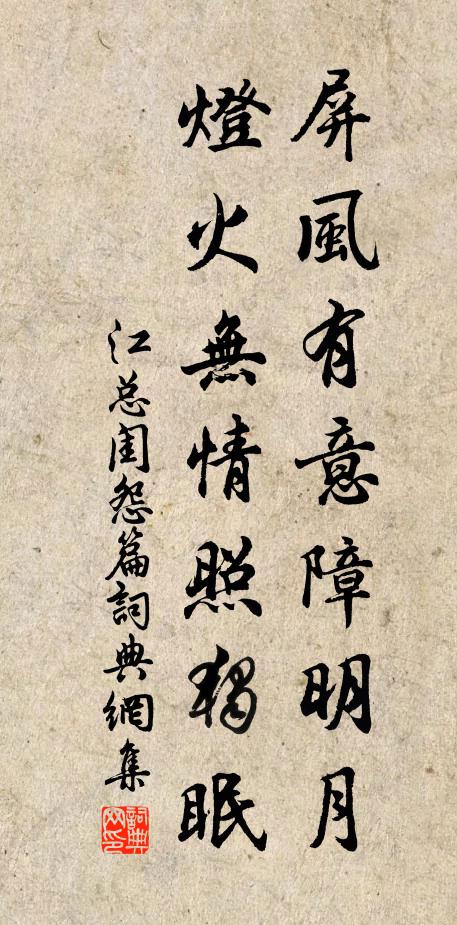 屏風有意障明月
燈火無情照獨眠
江总闺怨篇詞典網集
詞典
网印